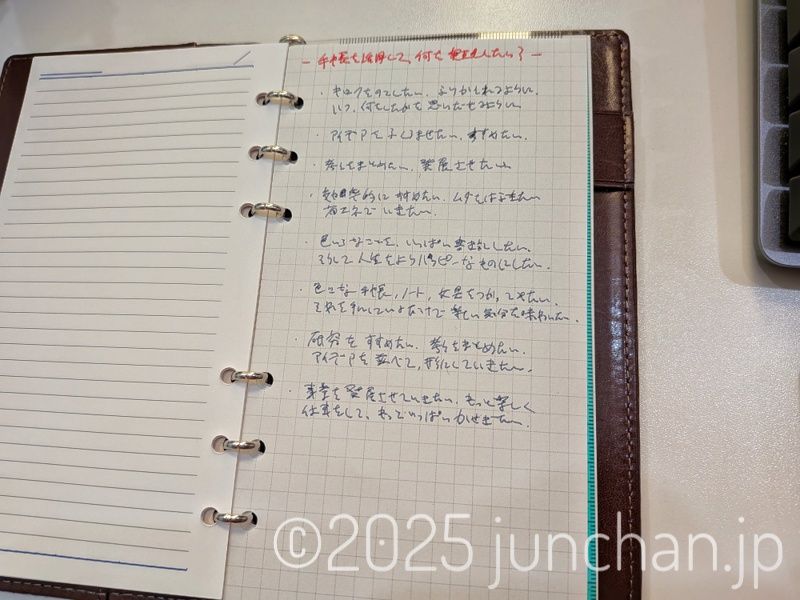 - 手帳を活用して、何を実現したい? -
・キロクをのこしたい。ふりかえれるように。
いつ、何をしたかを思いだせるように。
・アイデアをふくませたい。すすめたい。
・考えをまとめたい。発展させたい。
・効果的にすすめたい。ムダをはぶきたい
省エネでいきたい。
・色いろなことを、いっぱい書き出したい。
そして人生をよりハッピーなものにしたい。
・色々な手帳、ノート、文具をつかってみたい。
それを手にしているだけで楽しい気分を味わいたい。
・研究をすすめたい。考えをまとめたい。
アイデアを並べて、形にしていきたい。
・事業を発展させていきたい。もっと楽しく
仕事をして、もっといっぱいかせぎたい。
©2025 junchan.jp